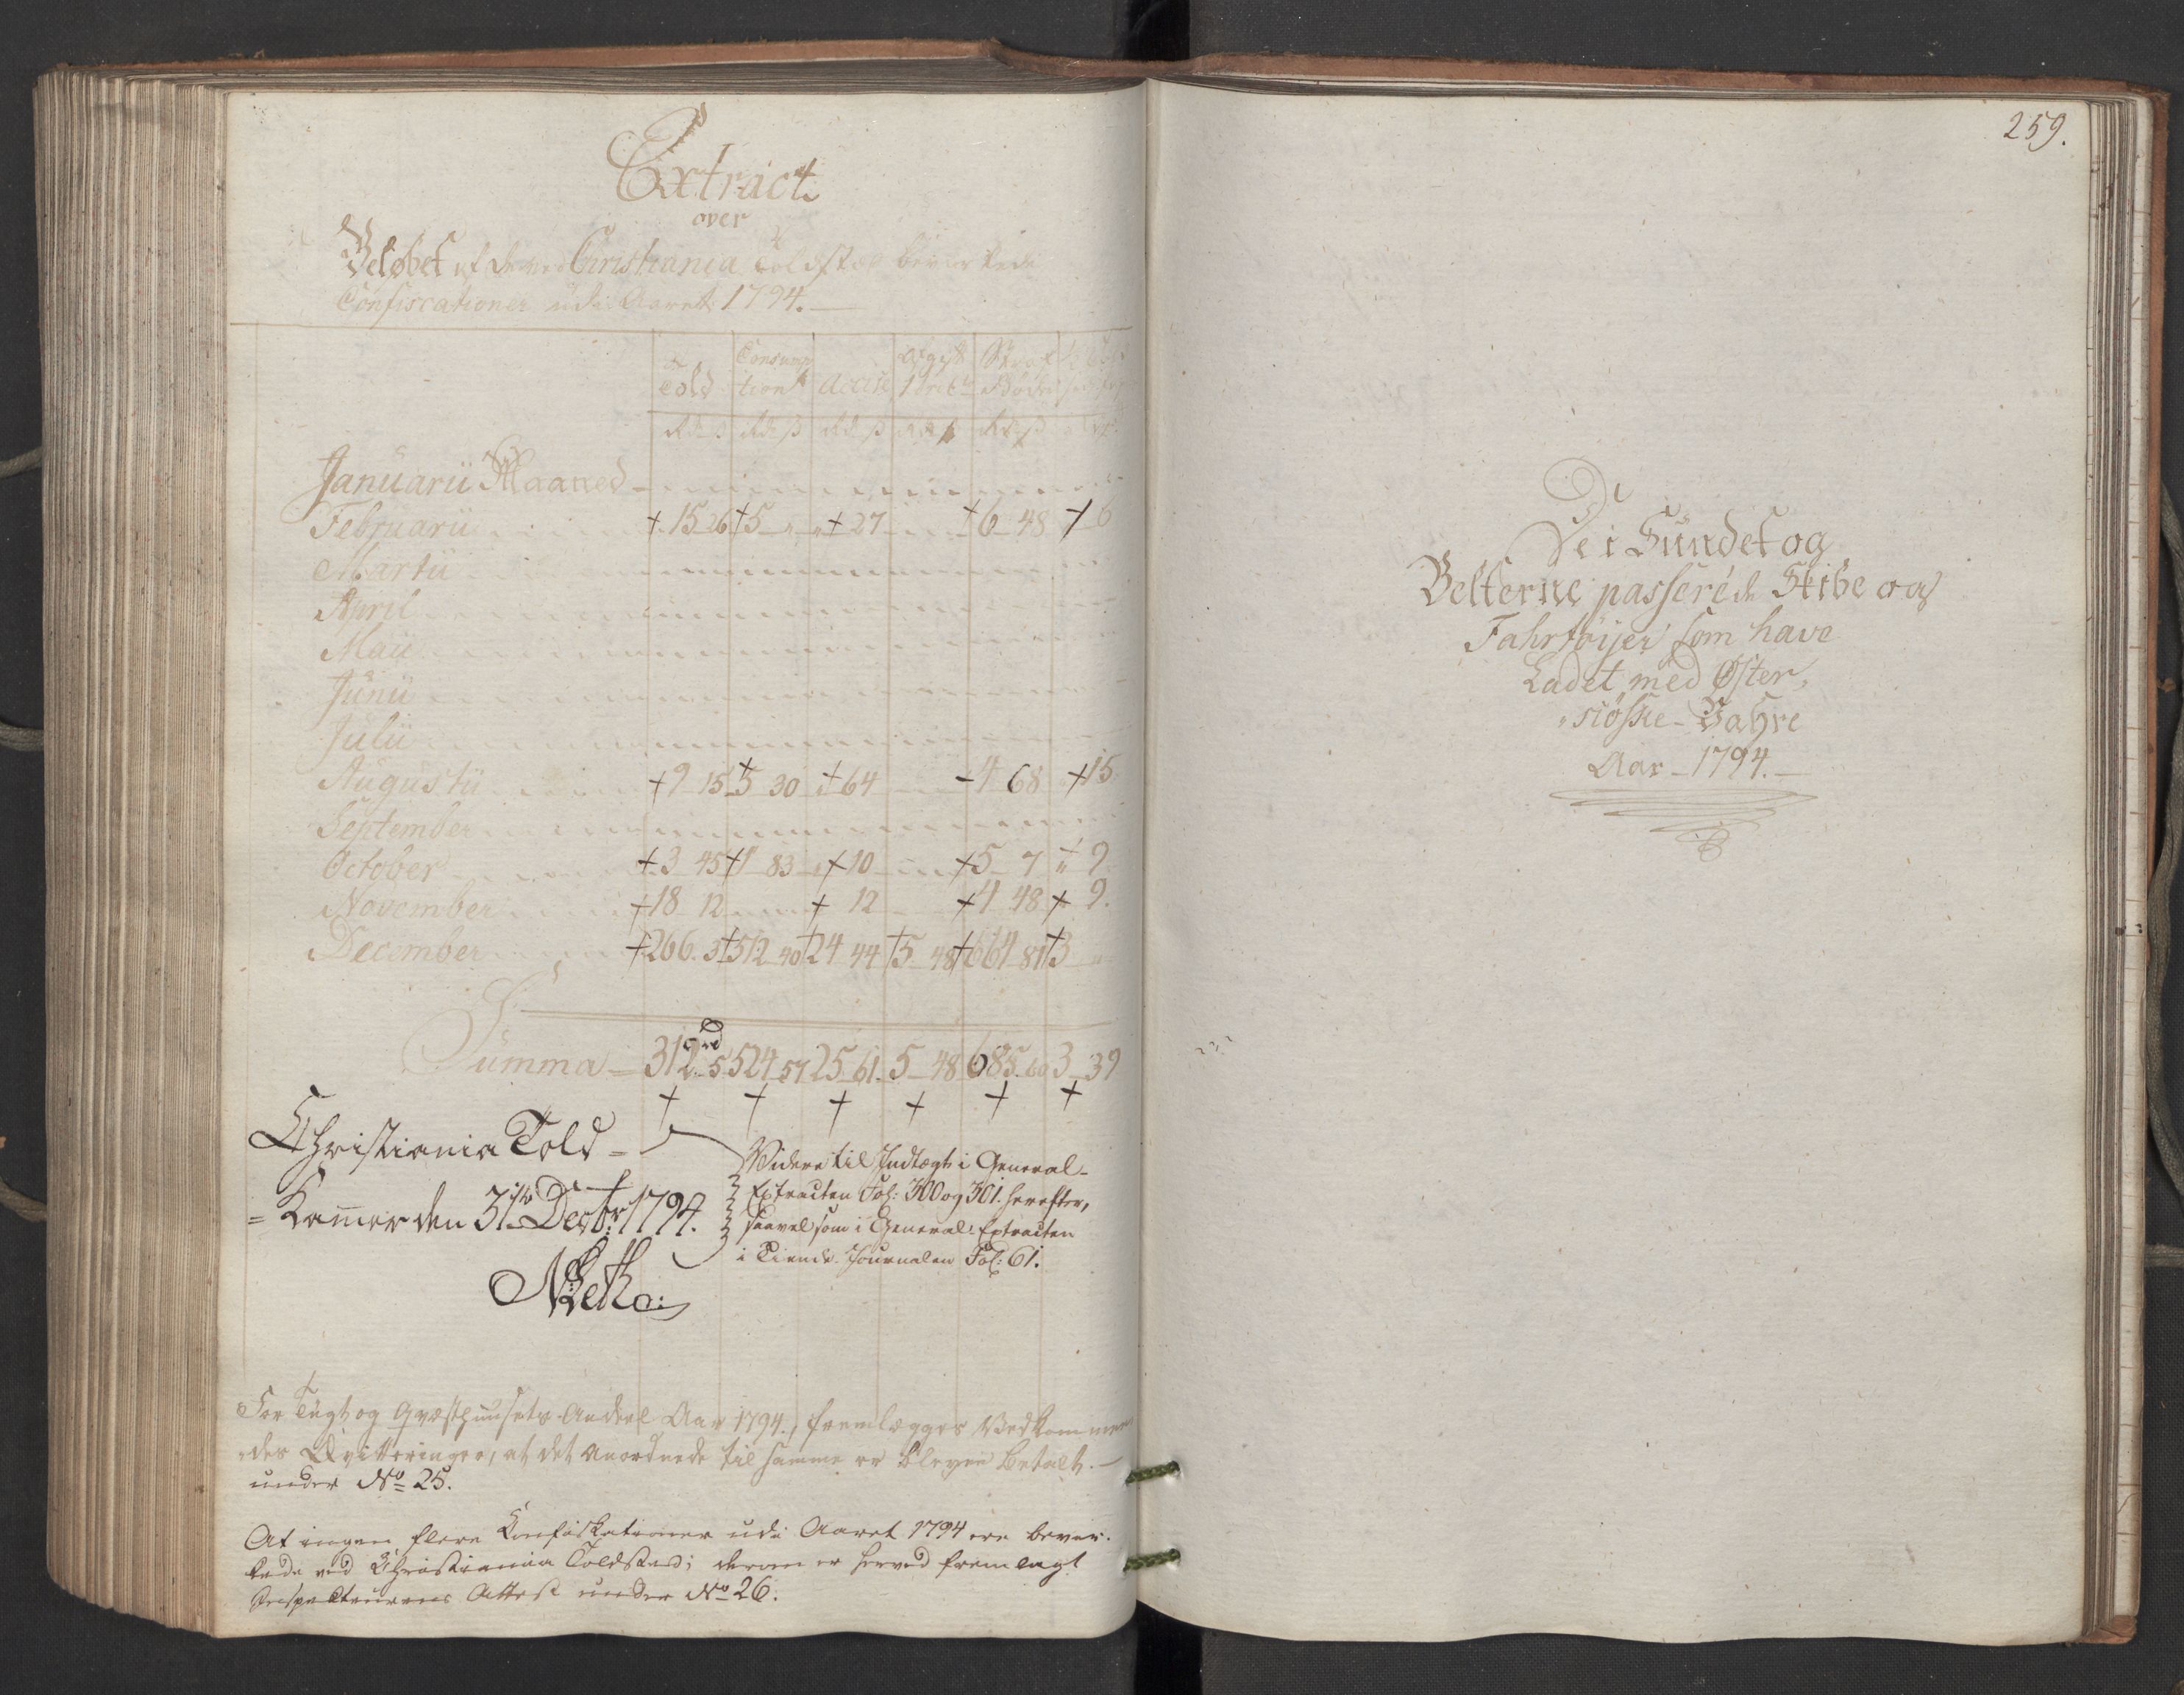 Extract
over
Beløbet af de ved Christiania Toldsted bevirkede
Confiscationer udi Aaret 1794.
Told Consumptions Accise Afgift Straf Bøder
Rd ß Rd ß Rd ß Rd ß Rd ß
Januarii Maaned
Februarii + 15 26 + 5 " " + 27 + 6 48 + 6
Martii
April
Maii
Junii
Julii
Augustii + 9 15 + 5 30 + 64 4 68 + 15
September
October + 3 45 + 1 83 " + 10 + 5 7 + 9
November + 18 12 + 12 + 4 48 + 9.
December + 266 3 + 512 40 + 24 44 + 5 48 + 664 81 + 3 "
Summa 312 rd 5 524 57 25 61. 5 48 685 60 3 39
+ + + + + +
Christiania Told-
=Kammer den 31te Decbr 1794.
Videre til Indtægt i General-
Extracten Fol: 300 og 301. herefter,
saavel som i General-Extracten
i Tiende-Journalen Fol: 61.
For Tugt og Qvæsthuusets Andeel Aar 1794., fremlægges Vedkommen-
-des Qvitteringer, at det anordnede til samme er bleven betalt.-
under No 25.
At ingen flere Confiskationer udi Aaret 1794 ere bevir-
kede ved Christiania Toldsted; derom er herved fremlagt
Inspecteurens Attest under No 26.
259.
De i Sundet og
Belterne passerede Skibe og
Fahrtøijer som have
Ladet med Øster,
"siøske-Vahre
Aar-1794.-